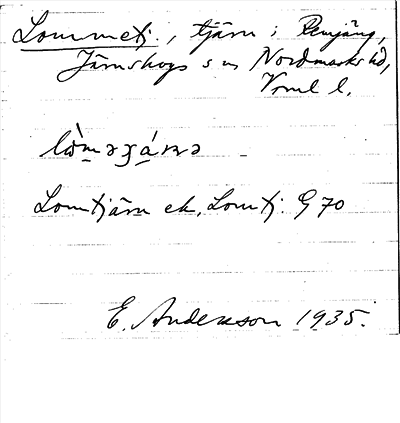 Lommetj., tjärn i Remjäng,
Järnskogs sn Nordmarks hd,
Vrml l.
lòmǝʒánǝ
Lomtjärn ek, Lomtj: G 70
E. Anderson 1935.